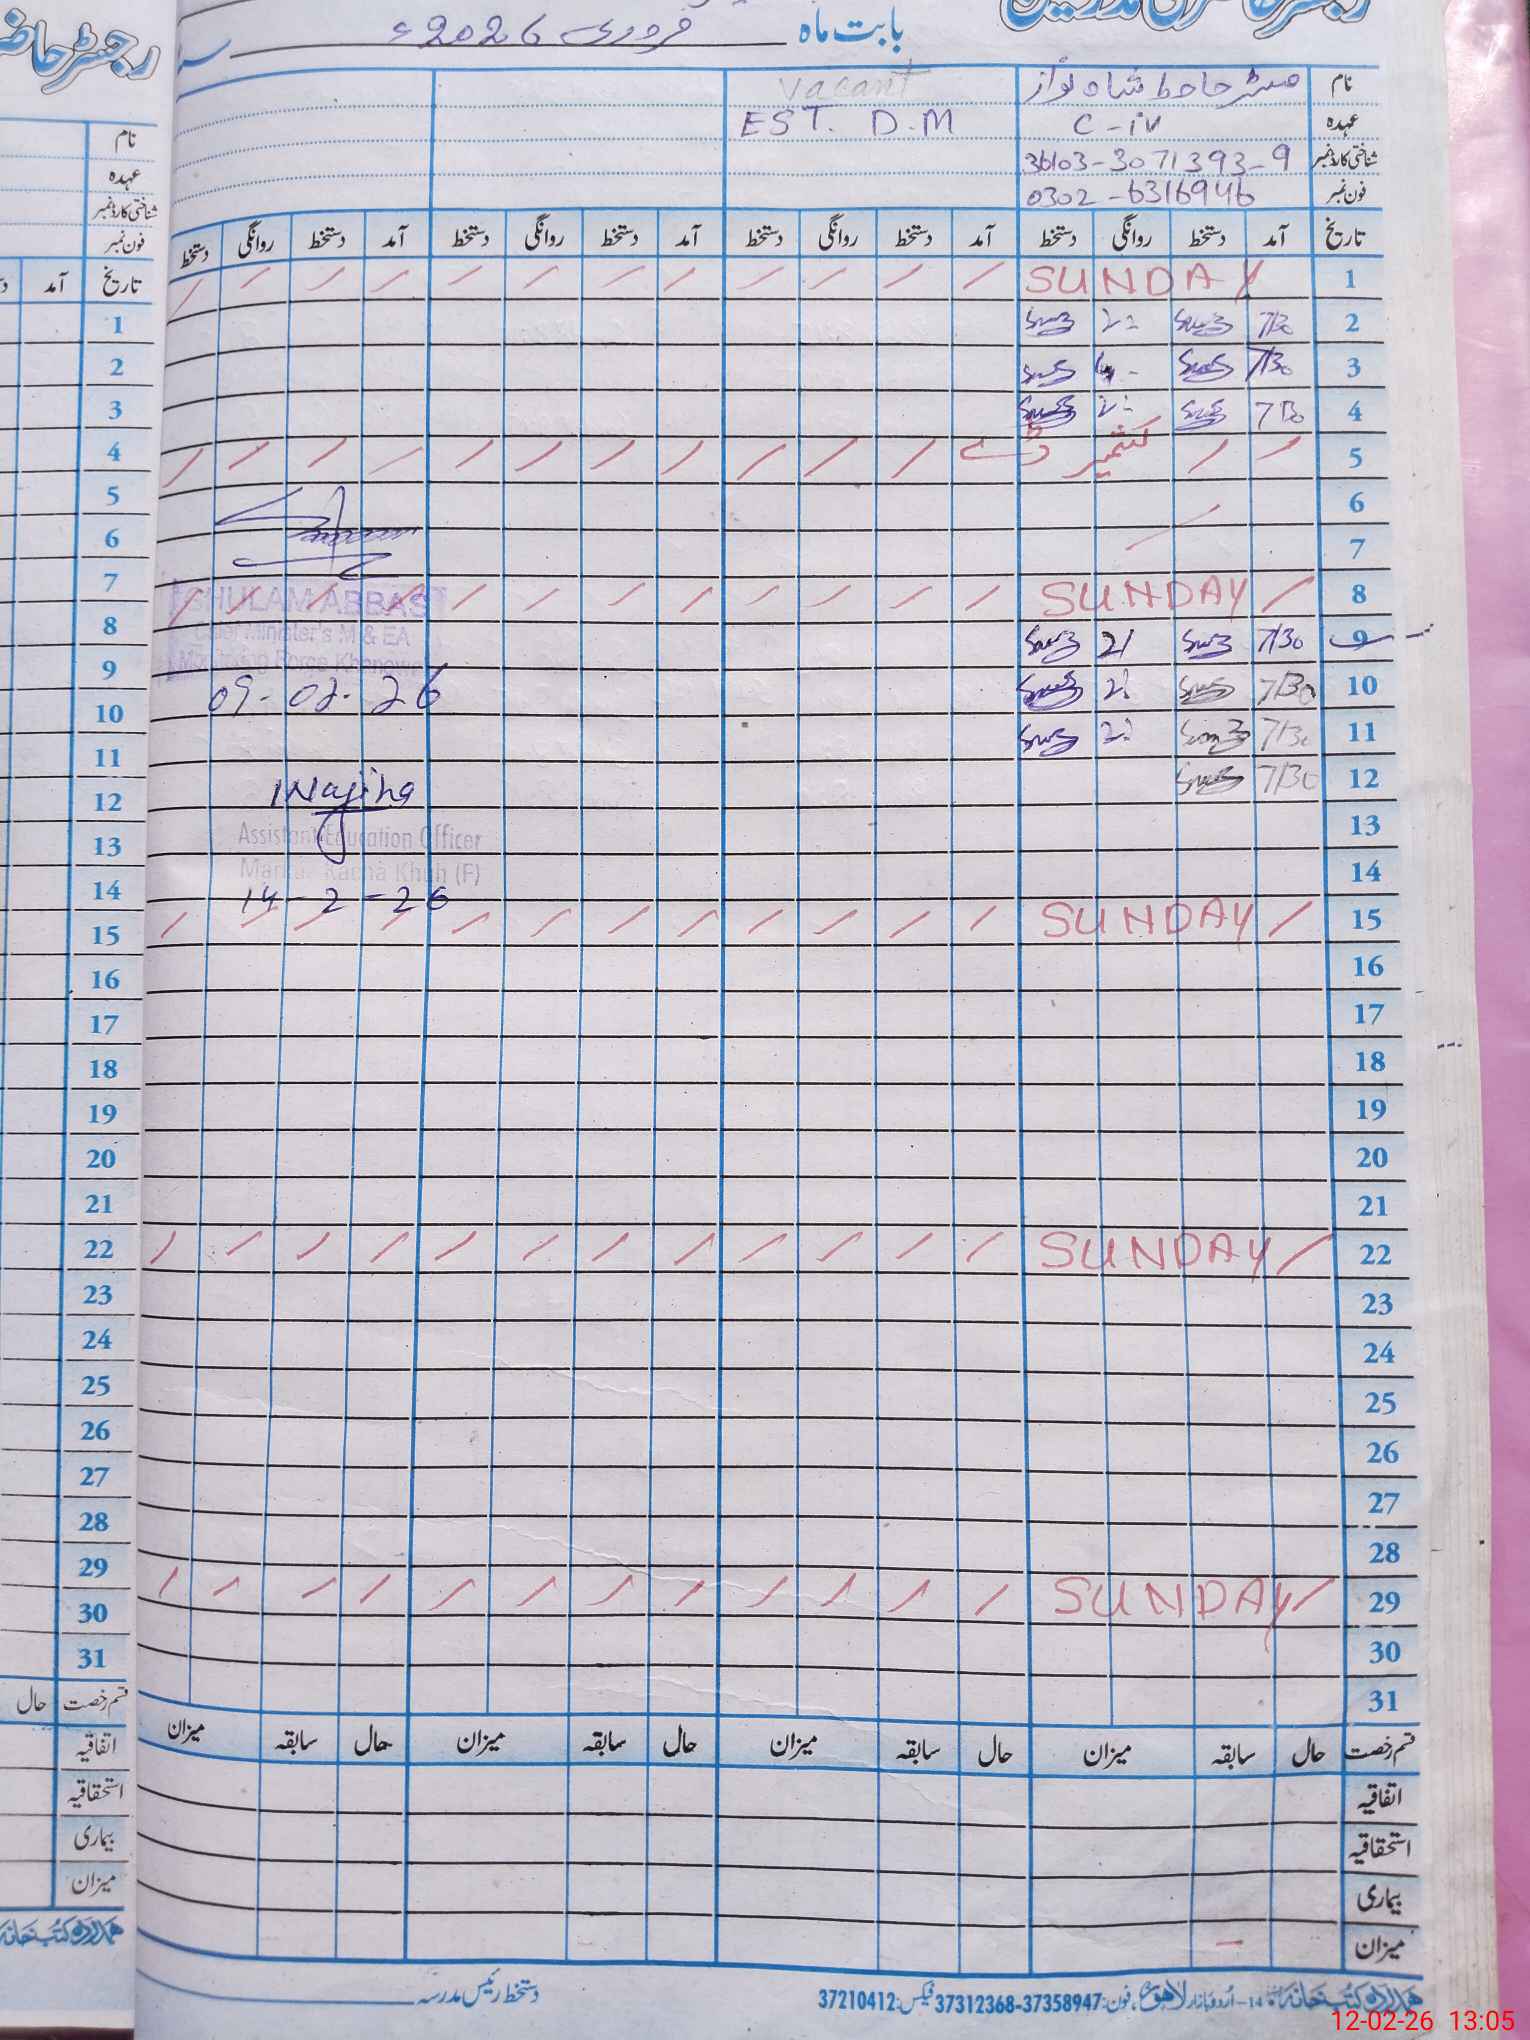 بابت ماہ فروری 2026ء
نام مسٹر حافظ شاہ نواز vacant
عہدہ C-iv EST. D.M
شناختی کارڈ نمبر 36103-3071393-9
فون نمبر 0302-6316946
تاریخ آمد دستخط روانگی دستخط آمد دستخط روانگی دستخط آمد دستخط روانگی دستخط آمد دستخط روانگی دستخط
1 SUNDAY
2 7/30
3 7/30
4 7/30
5 کشمیر ڈے
6
7
8 SUNDAY
GHULAM ABBAS
Chief Minister's M & EA
Monitoring Force Khanewal
9 7/30 21
09-02-26
10 7/30
11 7/30
12 7/30
Wajiha
13
Assistant Education Officer
14
Markaz Kacha Khuh (F)
14-2-26
15 SUNDAY
16
17
18
19
20
21
22 SUNDAY
23
24
25
26
27
28
29 SUNDAY
30
31
قسم رخصت حال سابقہ میزان حال سابقہ میزان حال سابقہ میزان حال سابقہ میزان
اتفاقیہ
استحقاقیہ
بیماری
میزان
ہمدرد کتب خانہ 14-اردو بازار لاہور، فون: 37358947-37312368 فیکس: 37210412
دستخط رئیس مدرسہ
رجسٹر حاضری
نام
عہدہ
شناختی کارڈ نمبر
فون نمبر
تاریخ آمد
1
2
3
4
5
6
7
8
9
10
11
12
13
14
15
16
17
18
19
20
21
22
23
24
25
26
27
28
29
30
31
قسم رخصت حال
اتفاقیہ
استحقاقیہ
بیماری
میزان
ہمدرد کتب خانہ
12-02-26 13:05